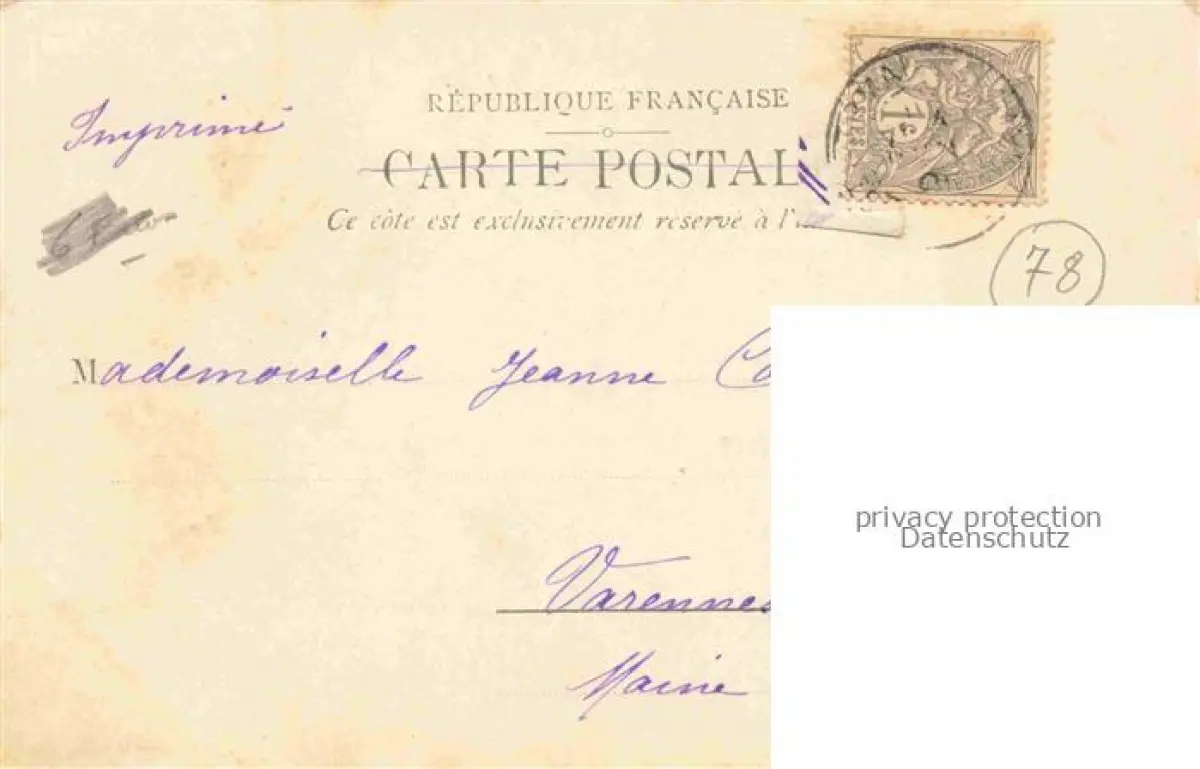 RÉPUBLIQUE FRANÇAISE
Imprimé
CARTE POSTAL
Ce côte est exclusivement réservé à l'
78
Mademoiselle Jeanne Co
Varennes
Maine
privacy protection
Datenschutz